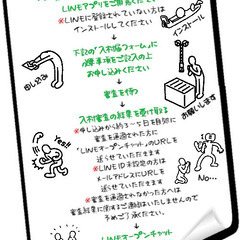 LINEアプリをご用意ください
※LINEに登録されていない方は
インストールしてください
インストール
下記の「入村届フォーム」に
必要事項をご記入の上
お申し込みください
申し込み
審査を待つ
お願いします
入村審査の結果を受け取る
※申し込みから約3〜7日を目安に
審査を通過された方に
「LINEオープンチャット」のURLを
送らせていただきます
※LINE ID未設定の方は
メールアドレスにURLを
送らせていただきます
※審査を通過されなかった方へは
審査結果に関するご連絡はいたしませんので
予めご了承ください。
Yes!!
No...
LINEオープンチャット